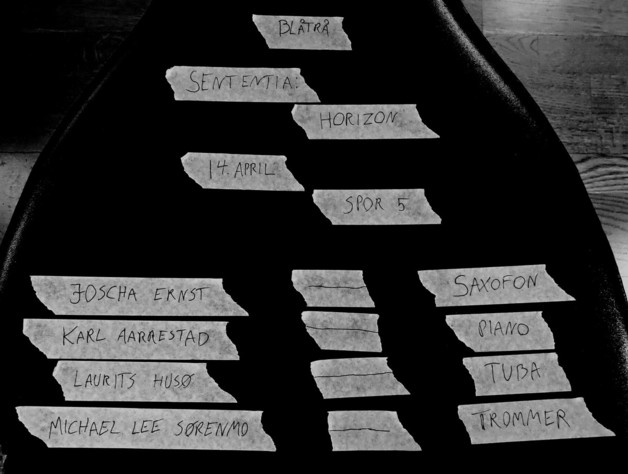 BLÅTRÅ
SENTENTIA:
HORIZON
14. APRIL
SPOR 5
JOSCHA ERNST — SAXOFON
KARL AARRESTAD — PIANO
LAURITS HUSØ — TUBA
MICHAEL LEE SØRENMO — TROMMER